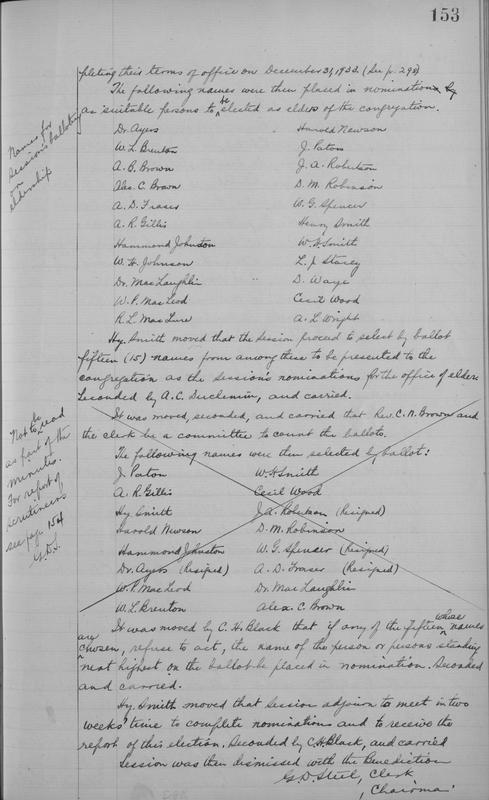 153
pleting their terms of office on December 31, 1933. (See p. 298)
The following names were then placed in nomination by
as suitable persons to be elected as elders of the congregation.
Names for
Session's balloting
on
eldership
Dr. Ayers Harold Newson
W. L. Brenton J. Paton
A. B. Brown J. A. Robertson
Alex. C. Brown D. M. Robinson
A. D. Fraser W. G. Spencer
A. R. Gillis Henry Smith
Hammond Johnston W. H. Smith
W. H. Johnson L. J. Stacey
Dr. MacLaughlin D. Waye
W. P. MacLeod Cecil Wood
R. L. MacLure A. L. Wright
Hy. Smith moved that the session proceed to select by ballot
fifteen (15) names from among these to be presented to the
congregation as the session's nominations for the office of elder.
Seconded by A. C. Duchemin, and carried.
It was moved, seconded, and carried that Rev. C. A. Brown and
the clerk be a committee to count the ballots.
Not to be read
as part of the
minutes.
For report of
scrutineers
see page 154
G.D.S.
The following names were then selected by ballot:
J. Paton W. H. Smith
A. R. Gillis Cecil Wood
Hy. Smith J. A. Robertson (Resigned)
Harold Newson D. M. Robinson
Hammond Johnston W. G. Spencer (Resigned)
Dr. Ayers (Resigned) A. D. Fraser (Resigned)
W. P. MacLeod Dr. MacLaughlin
W. L. Brenton Alex. C. Brown
It was moved by C. H. Black that if any of the fifteen whose names
are chosen, refuse to act, the name of the person or persons standing
next highest on the ballot be placed in nomination. Seconded
and carried.
Hy. Smith moved that Session adjourn to meet in two
weeks' time to complete nominations and to receive the
report of this election. Seconded by C. H. Black, and carried
Session was then dismissed with the Benediction
G. D. Steel, Clerk
, Chairman